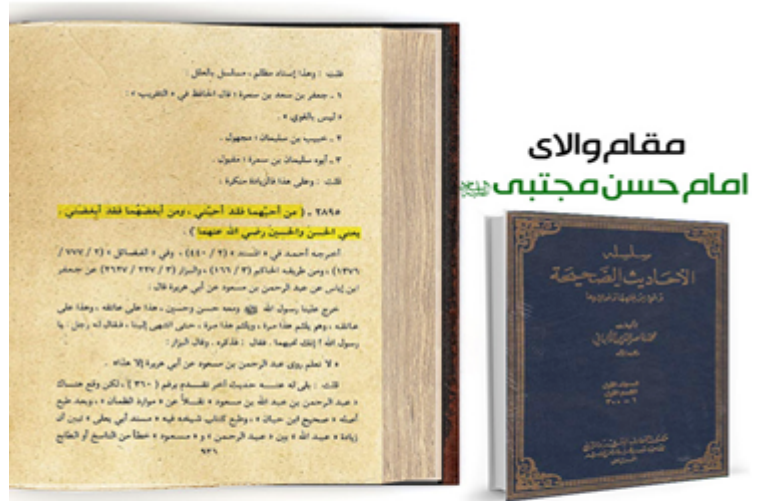 قلت : وهذا إسناد مظلم ، مسلسل بالعلل :
١ ـ جعفر بن سعد بن سمرة ؛ قال الحافظ في « التقريب » :
« ليس بالقوي » .
٢ ـ خبيب بن سليمان ؛ مجهول .
٣ ـ أبوه سليمان بن سمرة ؛ مقبول .
قلت : وعلى هذا فالزيادة منكرة .
٢٨٩٥ ـ ( من أحبَّهما فقد أحبَّني ، ومن أبغضَهما فقد أبغضَني .
يعني الحسن والحسين رضي الله عنهما ) .
أخرجه أحمد في « المسند » (٢ / ٤٤٠) ، وفي « الفضائل » (٢ / ٧٧٧ /
١٣٧٦) ، ومن طريقه الحاكم (٣ / ١٦٦) ، والبزار (٣ / ٢٢٧ / ٢٦٢٧) عن جعفر
ابن إياس عن عبد الرحمن بن مسعود عن أبي هريرة قال :
خرج علينا رسول الله ﷺ ومعه حسن وحسين ، هذا على عاتقه ، وهذا على
عاتقه ، وهو يلثم هذا مرة ، ويلثم هذا مرة ، حتى انتهى إلينا ، فقال له رجل : يا
رسول الله ! إنك تحبهما . فقال : فذكره . وقال البزار :
« لا نعلم روى عبد الرحمن بن مسعود عن أبي هريرة إلا هذا» .
قلت : بلى له عنه حديث آخر تقدم برقم ( ٣٦٠ ) ، لكن وقع هناك
« عبد الرحمن بن عبد الله بن مسعود » نقلاً عن « موارد الظمآن » ، وبعد طبع
أصله « صحيح ابن حبان » ، وطبع كتاب شيخه فيه « مسند أبي يعلى » تبين أن
زيادة « عبد الله » بين « عبد الرحمن » و « مسعود » خطأ من الناسخ أو الطابع
٩٣١
مقام والای
امام حسن مجتبی
سلسلة
الأحاديث الصحيحة
وشيء من فقهها وفوائدها
تأليف
محمد ناصر الدين الألباني
المجلد الأول
القسم الأول
١ - ٣٠٠